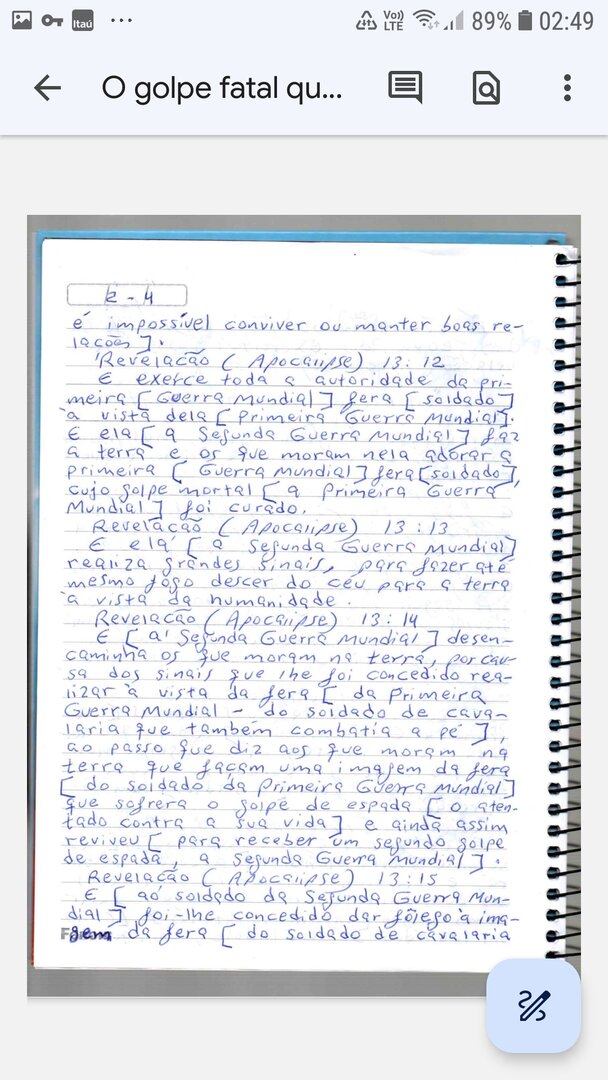 Itaú
Vo)) LTE
89%
02:49
O golpe fatal qu...
2 - 4
é impossível conviver ou manter boas re-
lações].
Revelação (Apocalipse) 13:12
E exerce toda a autoridade da pri-
meira [Guerra Mundial] fera [soldado]
à vista dela [Primeira Guerra Mundial].
E ela [a Segunda Guerra Mundial] faz
a terra e os que moram nela adorar a
primeira [Guerra Mundial] fera [soldado],
cujo golpe mortal [a Primeira Guerra
Mundial] foi curado.
Revelação (Apocalipse) 13:13
E ela [a Segunda Guerra Mundial]
realiza grandes sinais, para fazer até
mesmo fogo descer do céu para a terra
à vista da humanidade.
Revelação (Apocalipse) 13:14
E [a Segunda Guerra Mundial] desen-
caminha os que moram na terra, por cau-
sa dos sinais que lhe foi concedido rea-
lizar à vista da fera [da Primeira
Guerra Mundial - do soldado de cava-
laria que também combatia a pé],
ao passo que diz aos que moram na
terra que façam uma imagem da fera
[do soldado da Primeira Guerra Mundial]
que sofrera o golpe de espada [o aten-
tado contra a sua vida] e ainda assim
reviveu [para receber um segundo golpe
de espada, a Segunda Guerra Mundial].
Revelação (Apocalipse) 13:15
E [ao soldado da Segunda Guerra Mun-
dial] foi-lhe concedido dar fôlego à ima-
gem da fera [do soldado de cavalaria